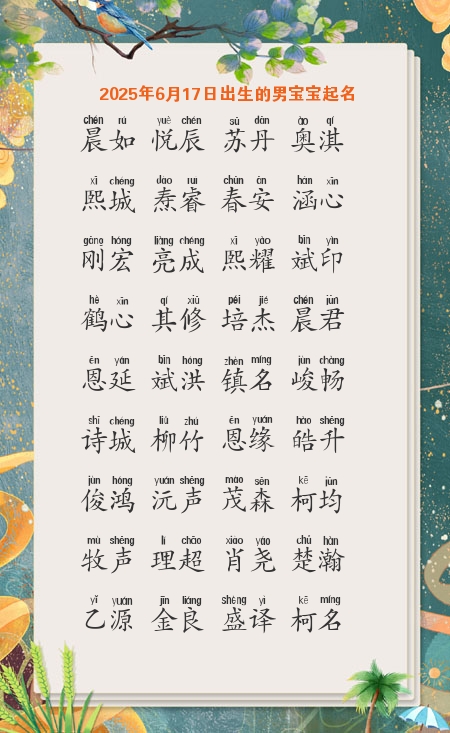 2025年6月17日出生的男宝宝起名
chén rú yuè chén sū dān ào qí
晨如 悦辰 苏丹 奥淇
xī chéng dào ruì chūn ān hán xīn
熙城 焘睿 春安 涵心
gāng hóng liàng chéng xī yào bīn yìn
刚宏 亮成 熙耀 斌印
hè xīn qí xiū péi jié chén jūn
鹤心 其修 培杰 晨君
ēn yán bīn hóng zhèn míng jùn chàng
恩延 斌洪 镇名 峻畅
shī chéng liǔ zhú ēn yuán hào shēng
诗城 柳竹 恩缘 皓升
jùn hóng yuán shēng mào sēn kē jūn
俊鸿 沅声 茂森 柯均
mù shēng lǐ chāo xiào yáo chǔ hàn
牧声 理超 肖尧 楚瀚
yǐ yuán jīn liáng shèng yì kē míng
乙源 金良 盛译 柯名